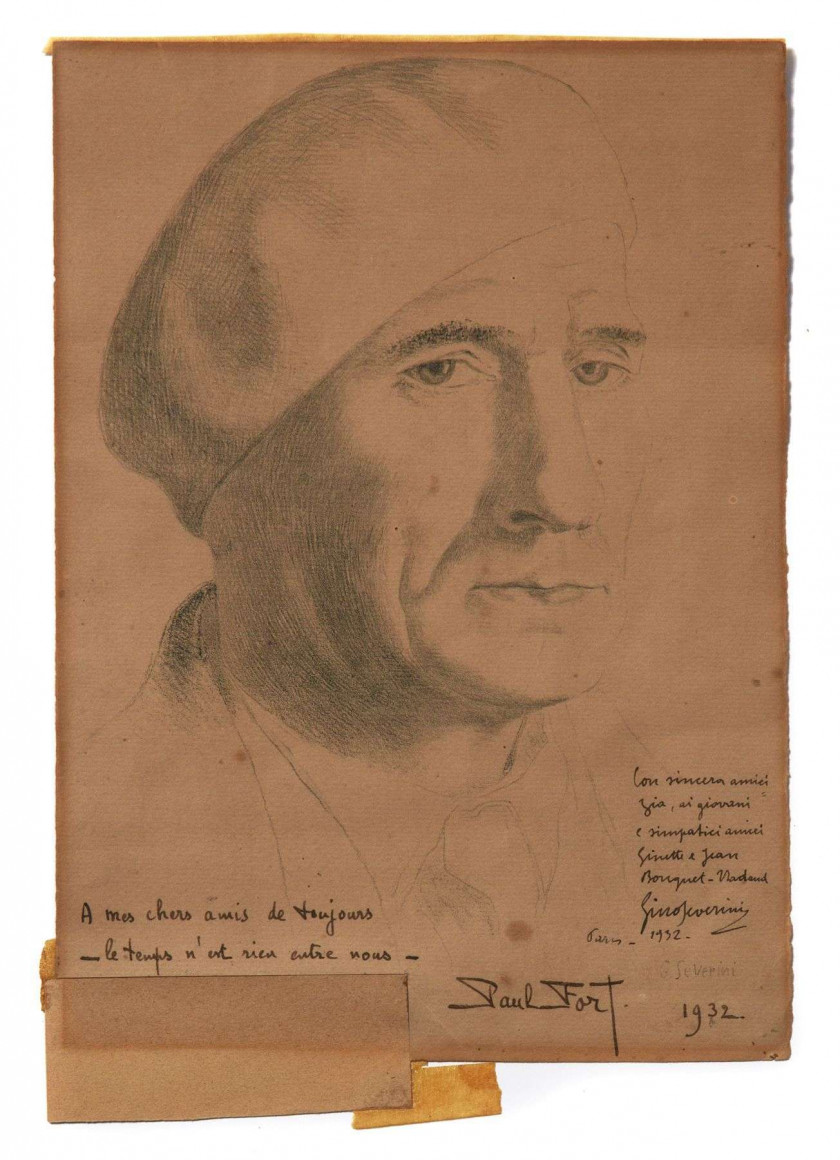 A mes chers amis de toujours
— le temps n'est rien entre nous —
Paul Fort.
Con sincera amici
zia, ai giovani
e simpatici amici
Ginette e Jean
Bouquet-Nadaud
Gino Severini
Paris - 1932 -
G Severini
1932.